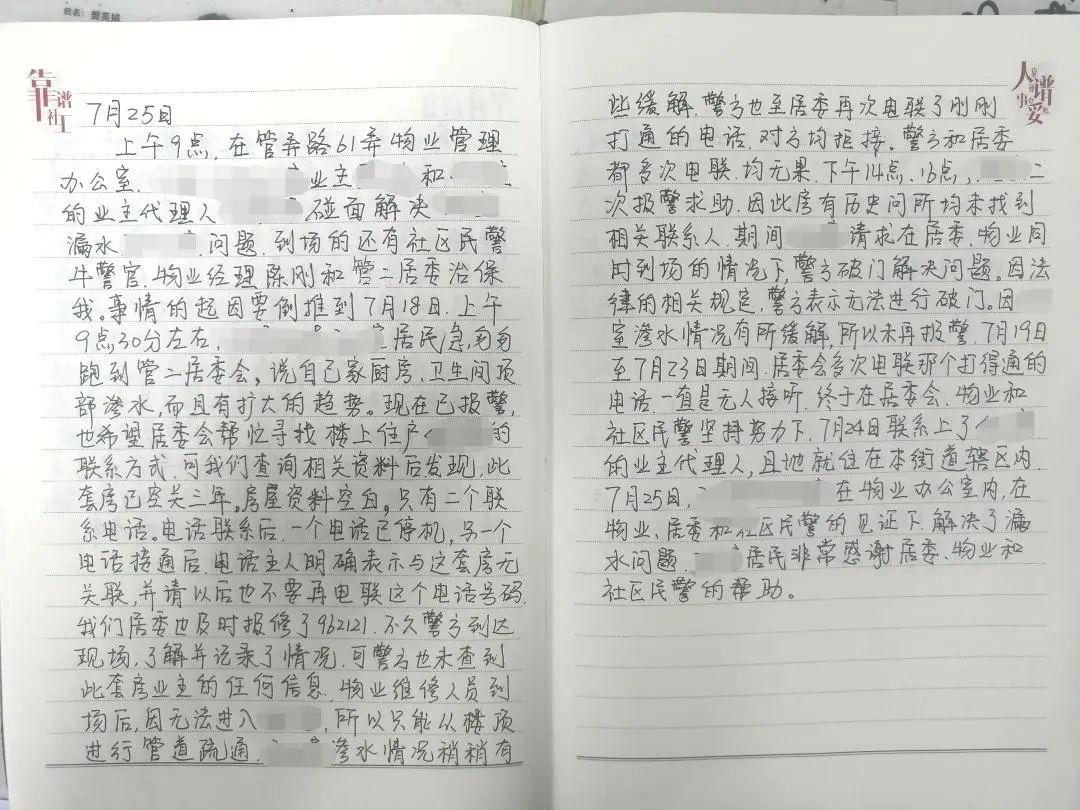 姓名：樊美娟
靠谱社工
7月25日
上午9点，在管弄路61弄物业管理
办公室， 业主 和
的业主代理人 碰面解决
漏水 问题，到场的还有社区民警
牛警官，物业经理陈刚和管二居委治保
我。事情的起因要倒推到7月18日，上午
9点30分左右， 居民急匆匆
跑到管二居委会，说自己家厨房、卫生间顶
部渗水，而且有扩大的趋势。现在已报警，
也希望居委会帮忙寻找楼上住户 的
联系方式，可我们查询相关资料后发现，此
套房已空关三年。房屋资料空白，只有二个联
系电话。电话联系后，一个电话已停机，另一个
电话接通后，电话主人明确表示与这套房无
关联，并请以后也不要再电联这个电话号码。
我们居委也及时报修了962121，不久警方到达
现场，了解并记录了情况，可警方也未查到
此套房业主的任何信息，物业维修人员到
场后，因无法进入 ，所以只能从楼顶
进行管道疏通， 渗水情况稍稍有
人靠谱事妥
些缓解，警方也至居委再次电联了刚刚
打通的电话，对方均拒接，警方和居委
都多次电联，均无果，下午14点、16点， 二
次报警求助，因此房有历史问所均未找到
相关联系人，期间 请求在居委、物业同
时到场的情况下，警方破门解决问题。因法
律的相关规定，警方表示无法进行破门。因
室渗水情况有所缓解，所以未再报警，7月19日
至7月23日期间，居委会多次电联那个打得通的
电话，一直是无人接听，终于在居委会、物业和
社区民警坚持努力下，7月24日联系上了
的业主代理人，且她就住在本街道辖区内，
7月25日， 在物业办公室内，在
物业、居委和社区民警的见证下，解决了漏
水问题， 居民非常感谢居委、物业和
社区民警的帮助。